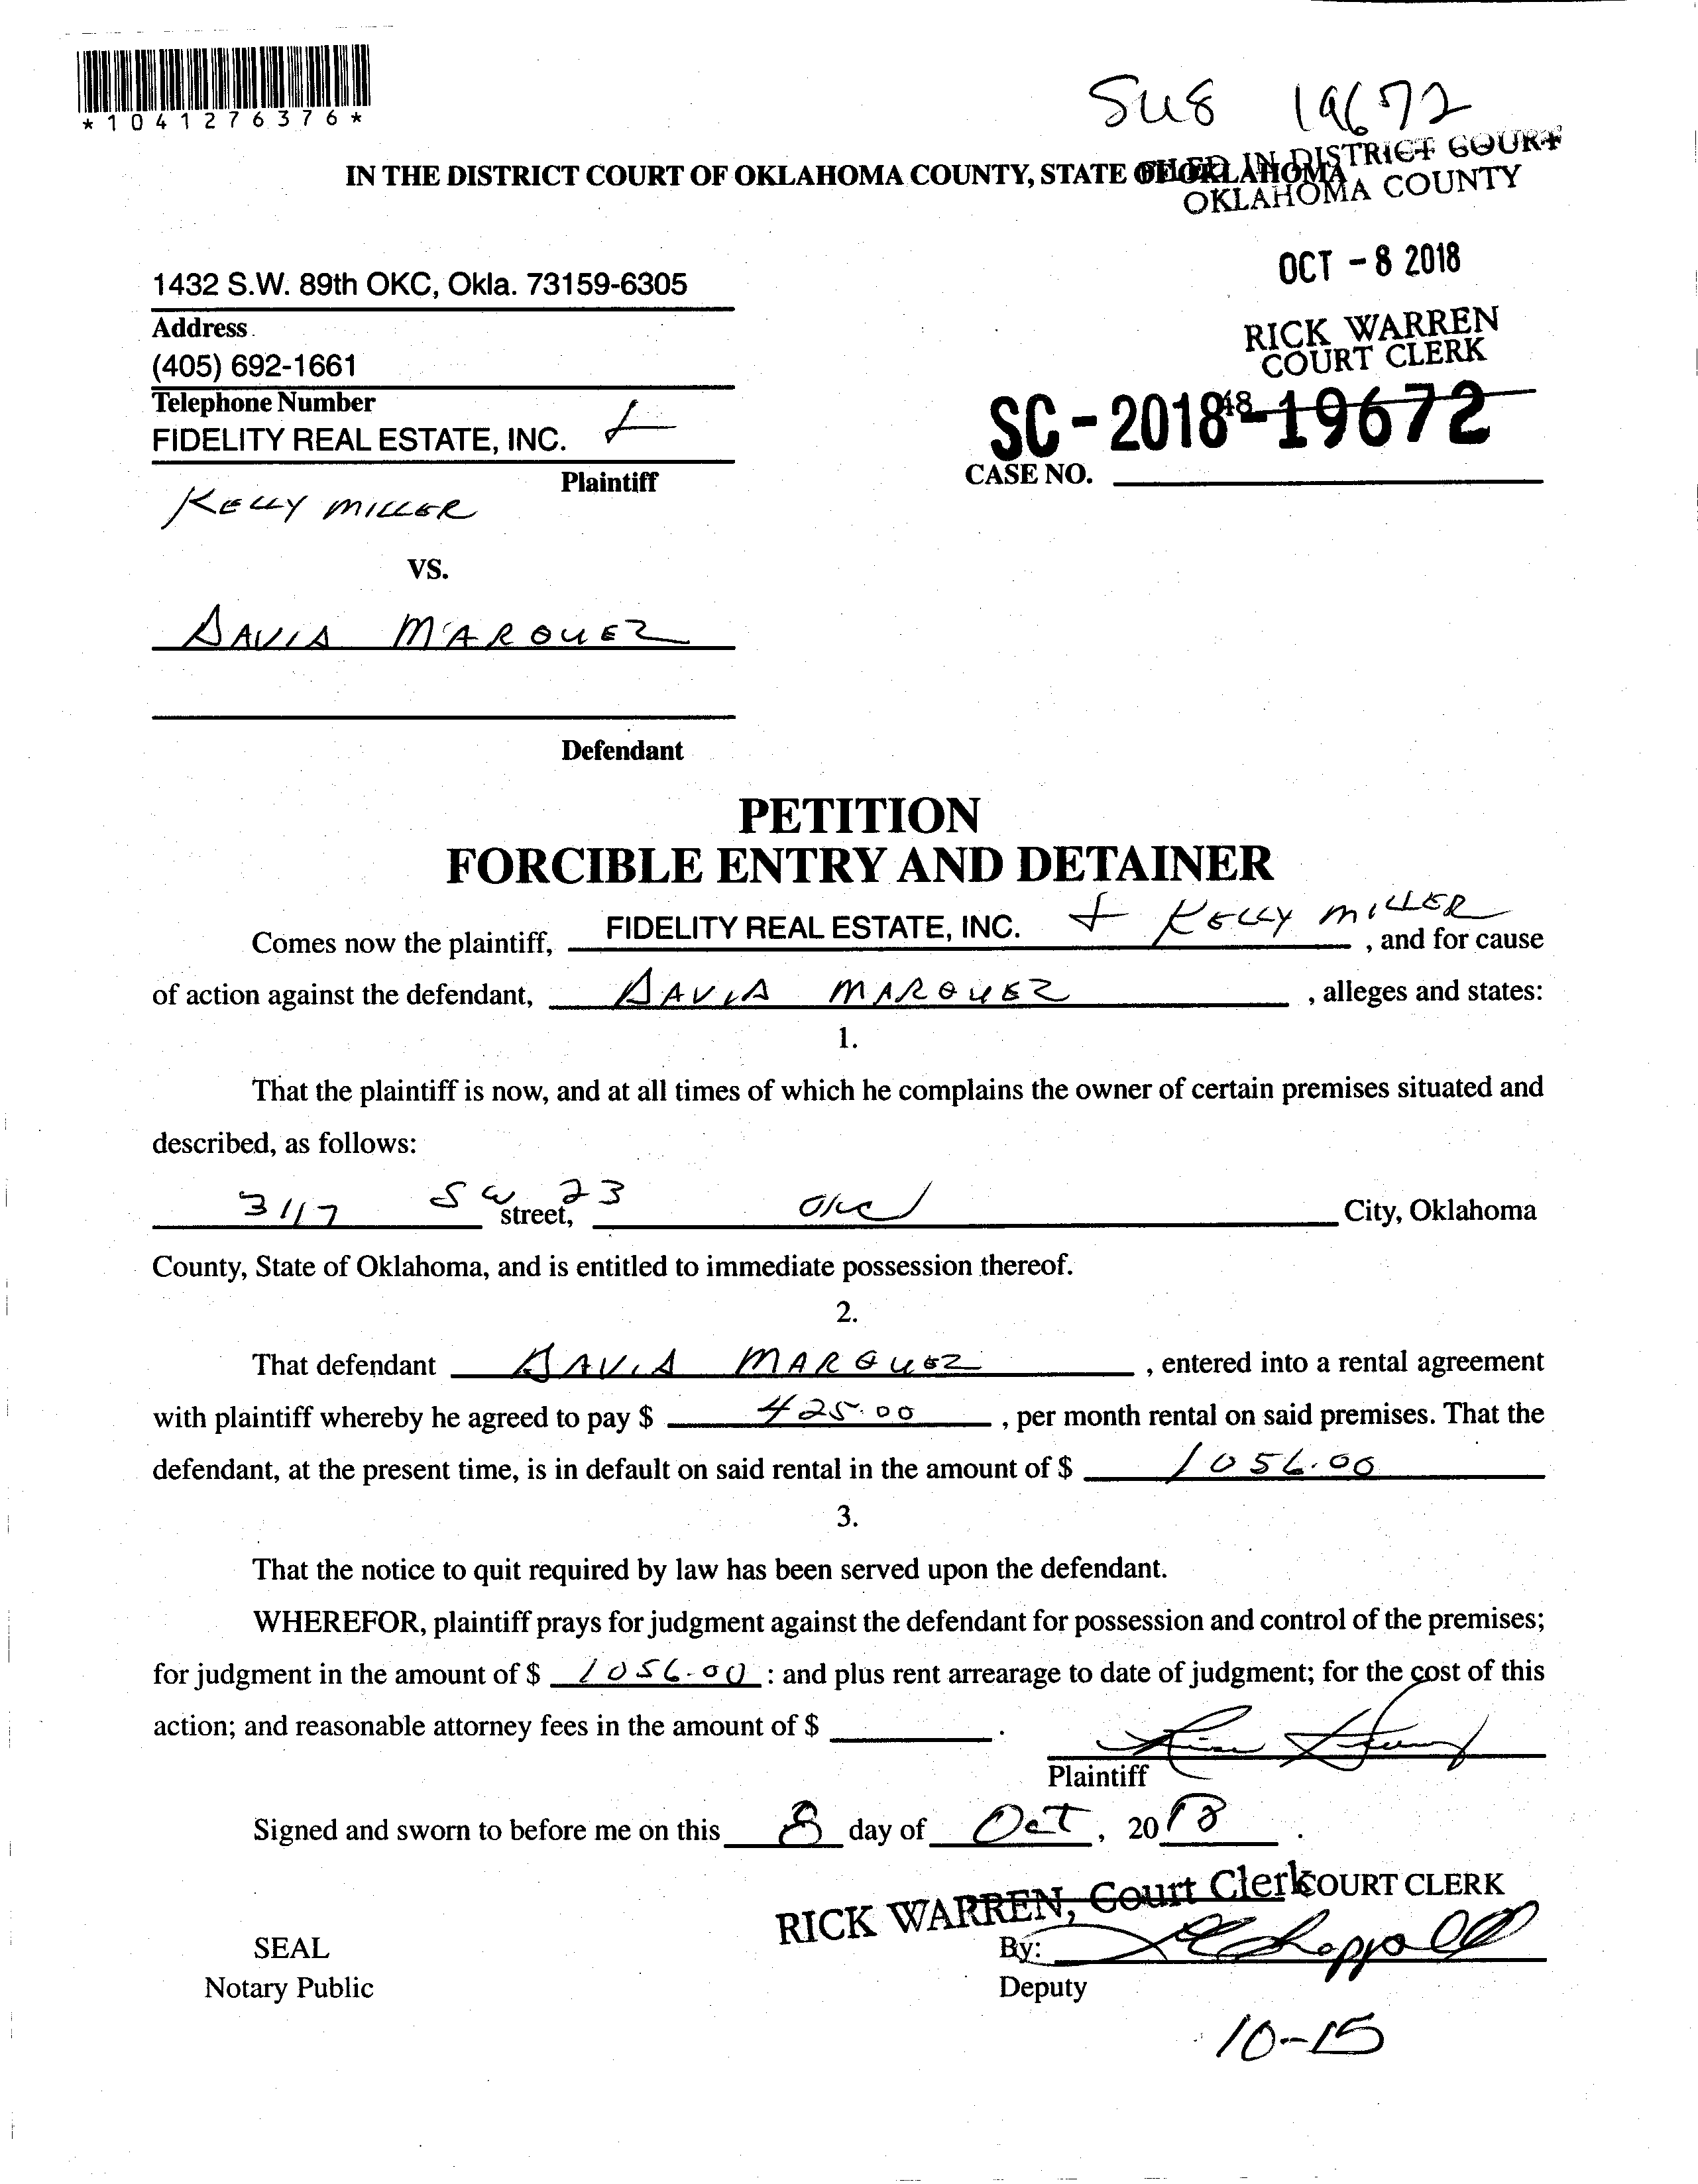 *1041276376*
SUS 19672
IN THE DISTRICT COURT OF OKLAHOMA COUNTY, STATE OF OKLAHOMA
FILED IN DISTRICT COURT
OKLAHOMA COUNTY
OCT - 8 2018
RICK WARREN
COURT CLERK
1432 S.W. 89th OKC, Okla. 73159-6305
Address
(405) 692-1661
Telephone Number
FIDELITY REAL ESTATE, INC. +
SC - 2018-19672
48
Plaintiff
CASE NO.
KELLY MILLER
VS.
DAVID MARQUEZ
Defendant
PETITION
FORCIBLE ENTRY AND DETAINER
Comes now the plaintiff, FIDELITY REAL ESTATE, INC. + KELLY MILLER, and for cause
of action against the defendant, DAVID MARQUEZ, alleges and states:
1.
That the plaintiff is now, and at all times of which he complains the owner of certain premises situated and
described, as follows:
3117 SW 23 street, OKC City, Oklahoma
County, State of Oklahoma, and is entitled to immediate possession thereof.
2.
That defendant DAVID MARQUEZ, entered into a rental agreement
with plaintiff whereby he agreed to pay $ 425.00, per month rental on said premises. That the
defendant, at the present time, is in default on said rental in the amount of $ 1056.00
3.
That the notice to quit required by law has been served upon the defendant.
WHEREFOR, plaintiff prays for judgment against the defendant for possession and control of the premises;
for judgment in the amount of $ 1056.00 : and plus rent arrearage to date of judgment; for the cost of this
action; and reasonable attorney fees in the amount of $ .
Plaintiff
Signed and sworn to before me on this 8 day of Oct, 2018.
RICK WARREN, Court Clerk COURT CLERK
SEAL
By:
Notary Public
Deputy
10-15